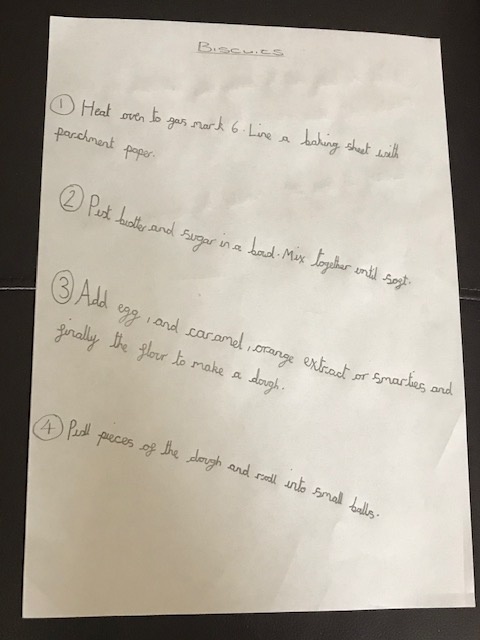 Biscuits
① Heat oven to gas mark 6. Line a baking sheet with
parchment paper.
② Put butter and sugar in a bowl. Mix together until soft.
③ Add egg, and caramel, orange extract or smarties and
finally the flour to make a dough.
④ Pull pieces of the dough and roll into small balls.